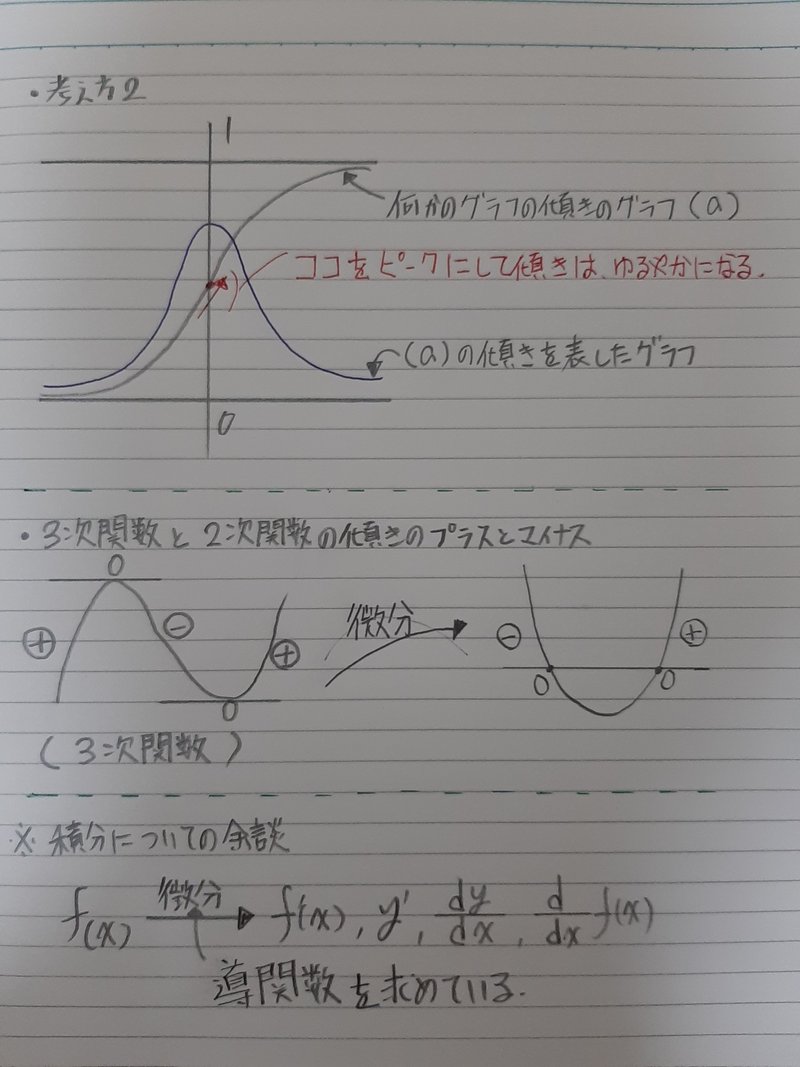 ・考え方2
1
何かのグラフの傾きのグラフ(a)
ココをピークにして傾きは、ゆるやかになる.
(a)の傾きを表したグラフ
0
・3次関数と2次関数の傾きのプラスとマイナス
0
⊕ ⊖ ⊕ 微分 ⊖ ⊕
0 0 0
(3次関数)
※ 積分についての余談
f(x) 微分 f'(x), y', dy/dx, d/dx f(x)
導関数を求めている.